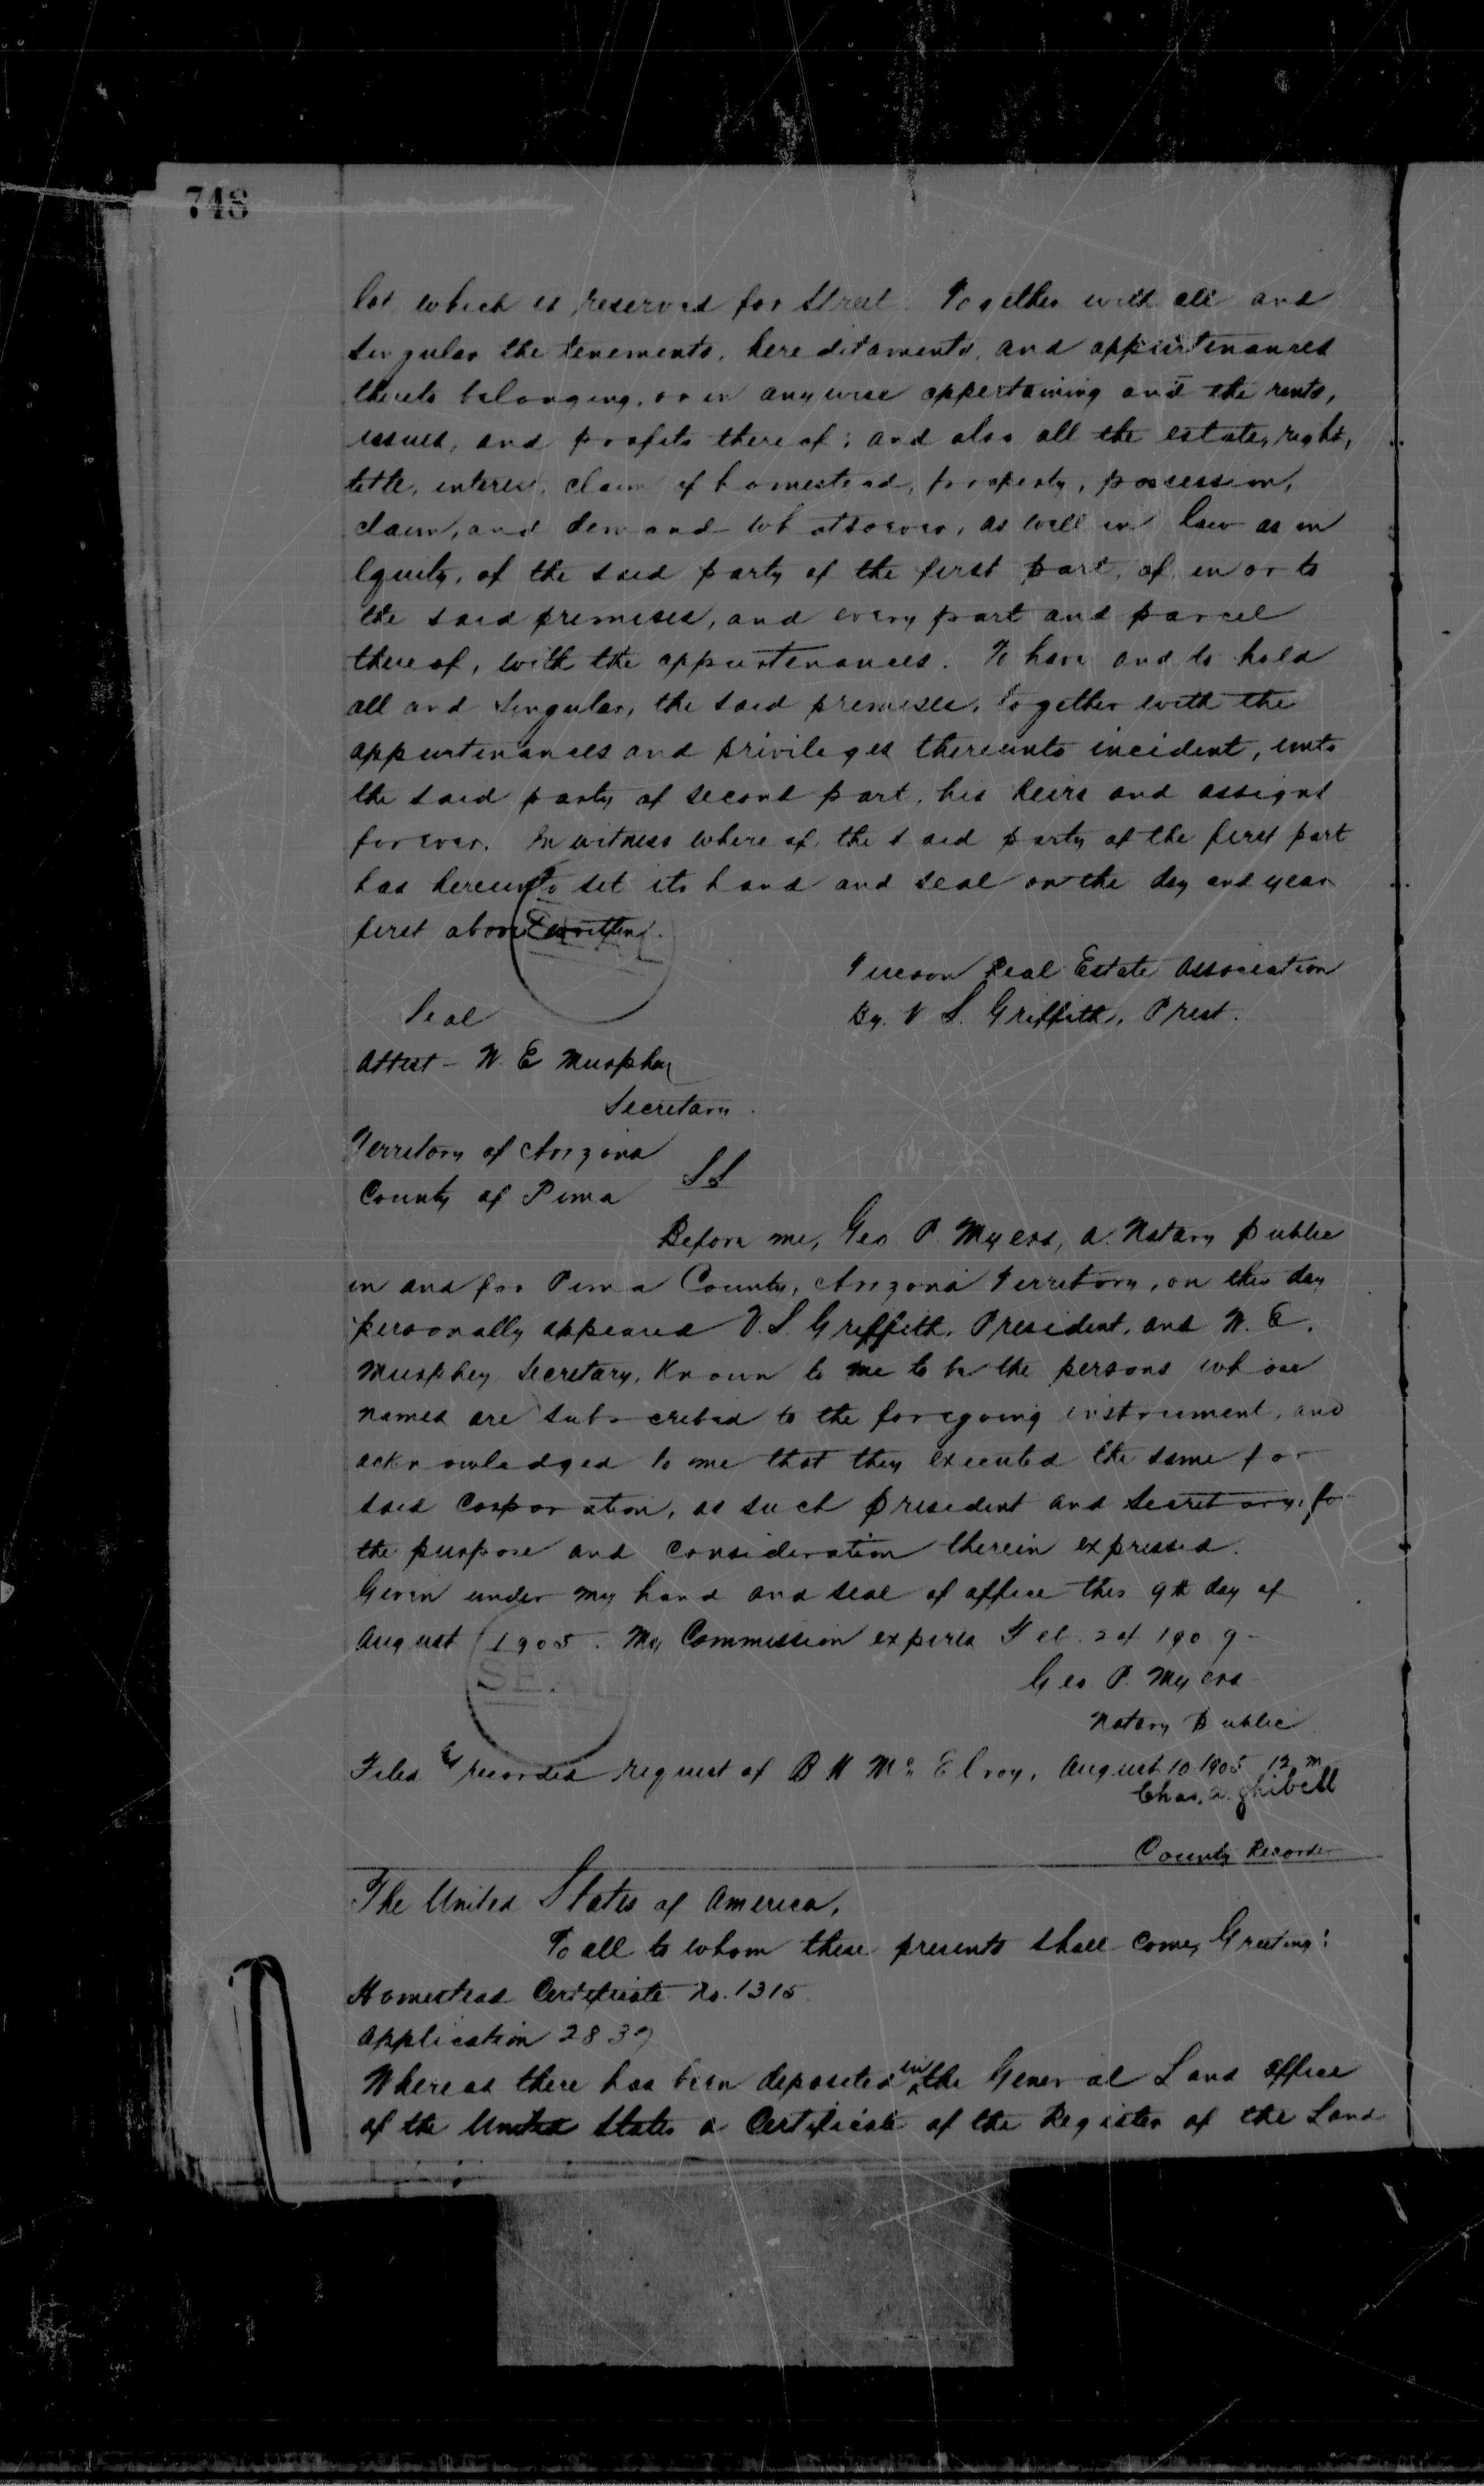 748
lot which is reserved for Street. Together with all and
singular the tenements, hereditaments, and appurtenances
thereto belonging, or in anywise appertaining and the rents,
issues, and profits thereof; and also all the estate, right,
title, interest, claim of homestead, property, possession,
claim, and demand whatsoever, as well in law as in
Equity, of the said party of the first part, of, in or to
the said premises, and every part and parcel
thereof, with the appurtenances. To have and to hold
all and singular, the said premises, together with the
appurtenances and privileges thereunto incident, unto
the said party of second part, his heirs and assigns
forever. In witness where of, the said party of the first part
has hereunto set its hand and seal on the day and year
first above written.
SEAL
Tucson Real Estate Association
Seal
By. V S. Griffith, Prest.
Attest - W. E Murphey
Secretary.
Territory of Arizona
SS
County of Pima
Before me, Geo P. Myers, a Notary Public
in and for Pima County, Arizona Territory, on this day
personally appeared V. S. Griffith, President, and W. E.
Murphey Secretary, Known to me to be the persons whose
names are subscribed to the foregoing instrument, and
acknowledged to me that they executed the same for
said Corporation, as such President and Secretary, for
the purpose and consideration therein expressed.
Given under my hand and seal of office this 9th day of
August 1905. My Commission expires Feb. 2d 1909-
SEAL
Geo P. Myers
Notary Public
Filed & recorded request of B H Mc Elroy, August 10 1905 12 m
Chas. A. Shibell
County Recorder
The United States of America,
To all to whom these presents shall come, Greeting:
Homestead Certificate No. 1315.
Application 2839
Whereas there has been deposited in the General Land office
of the United States a Certificate of the Register of the Land